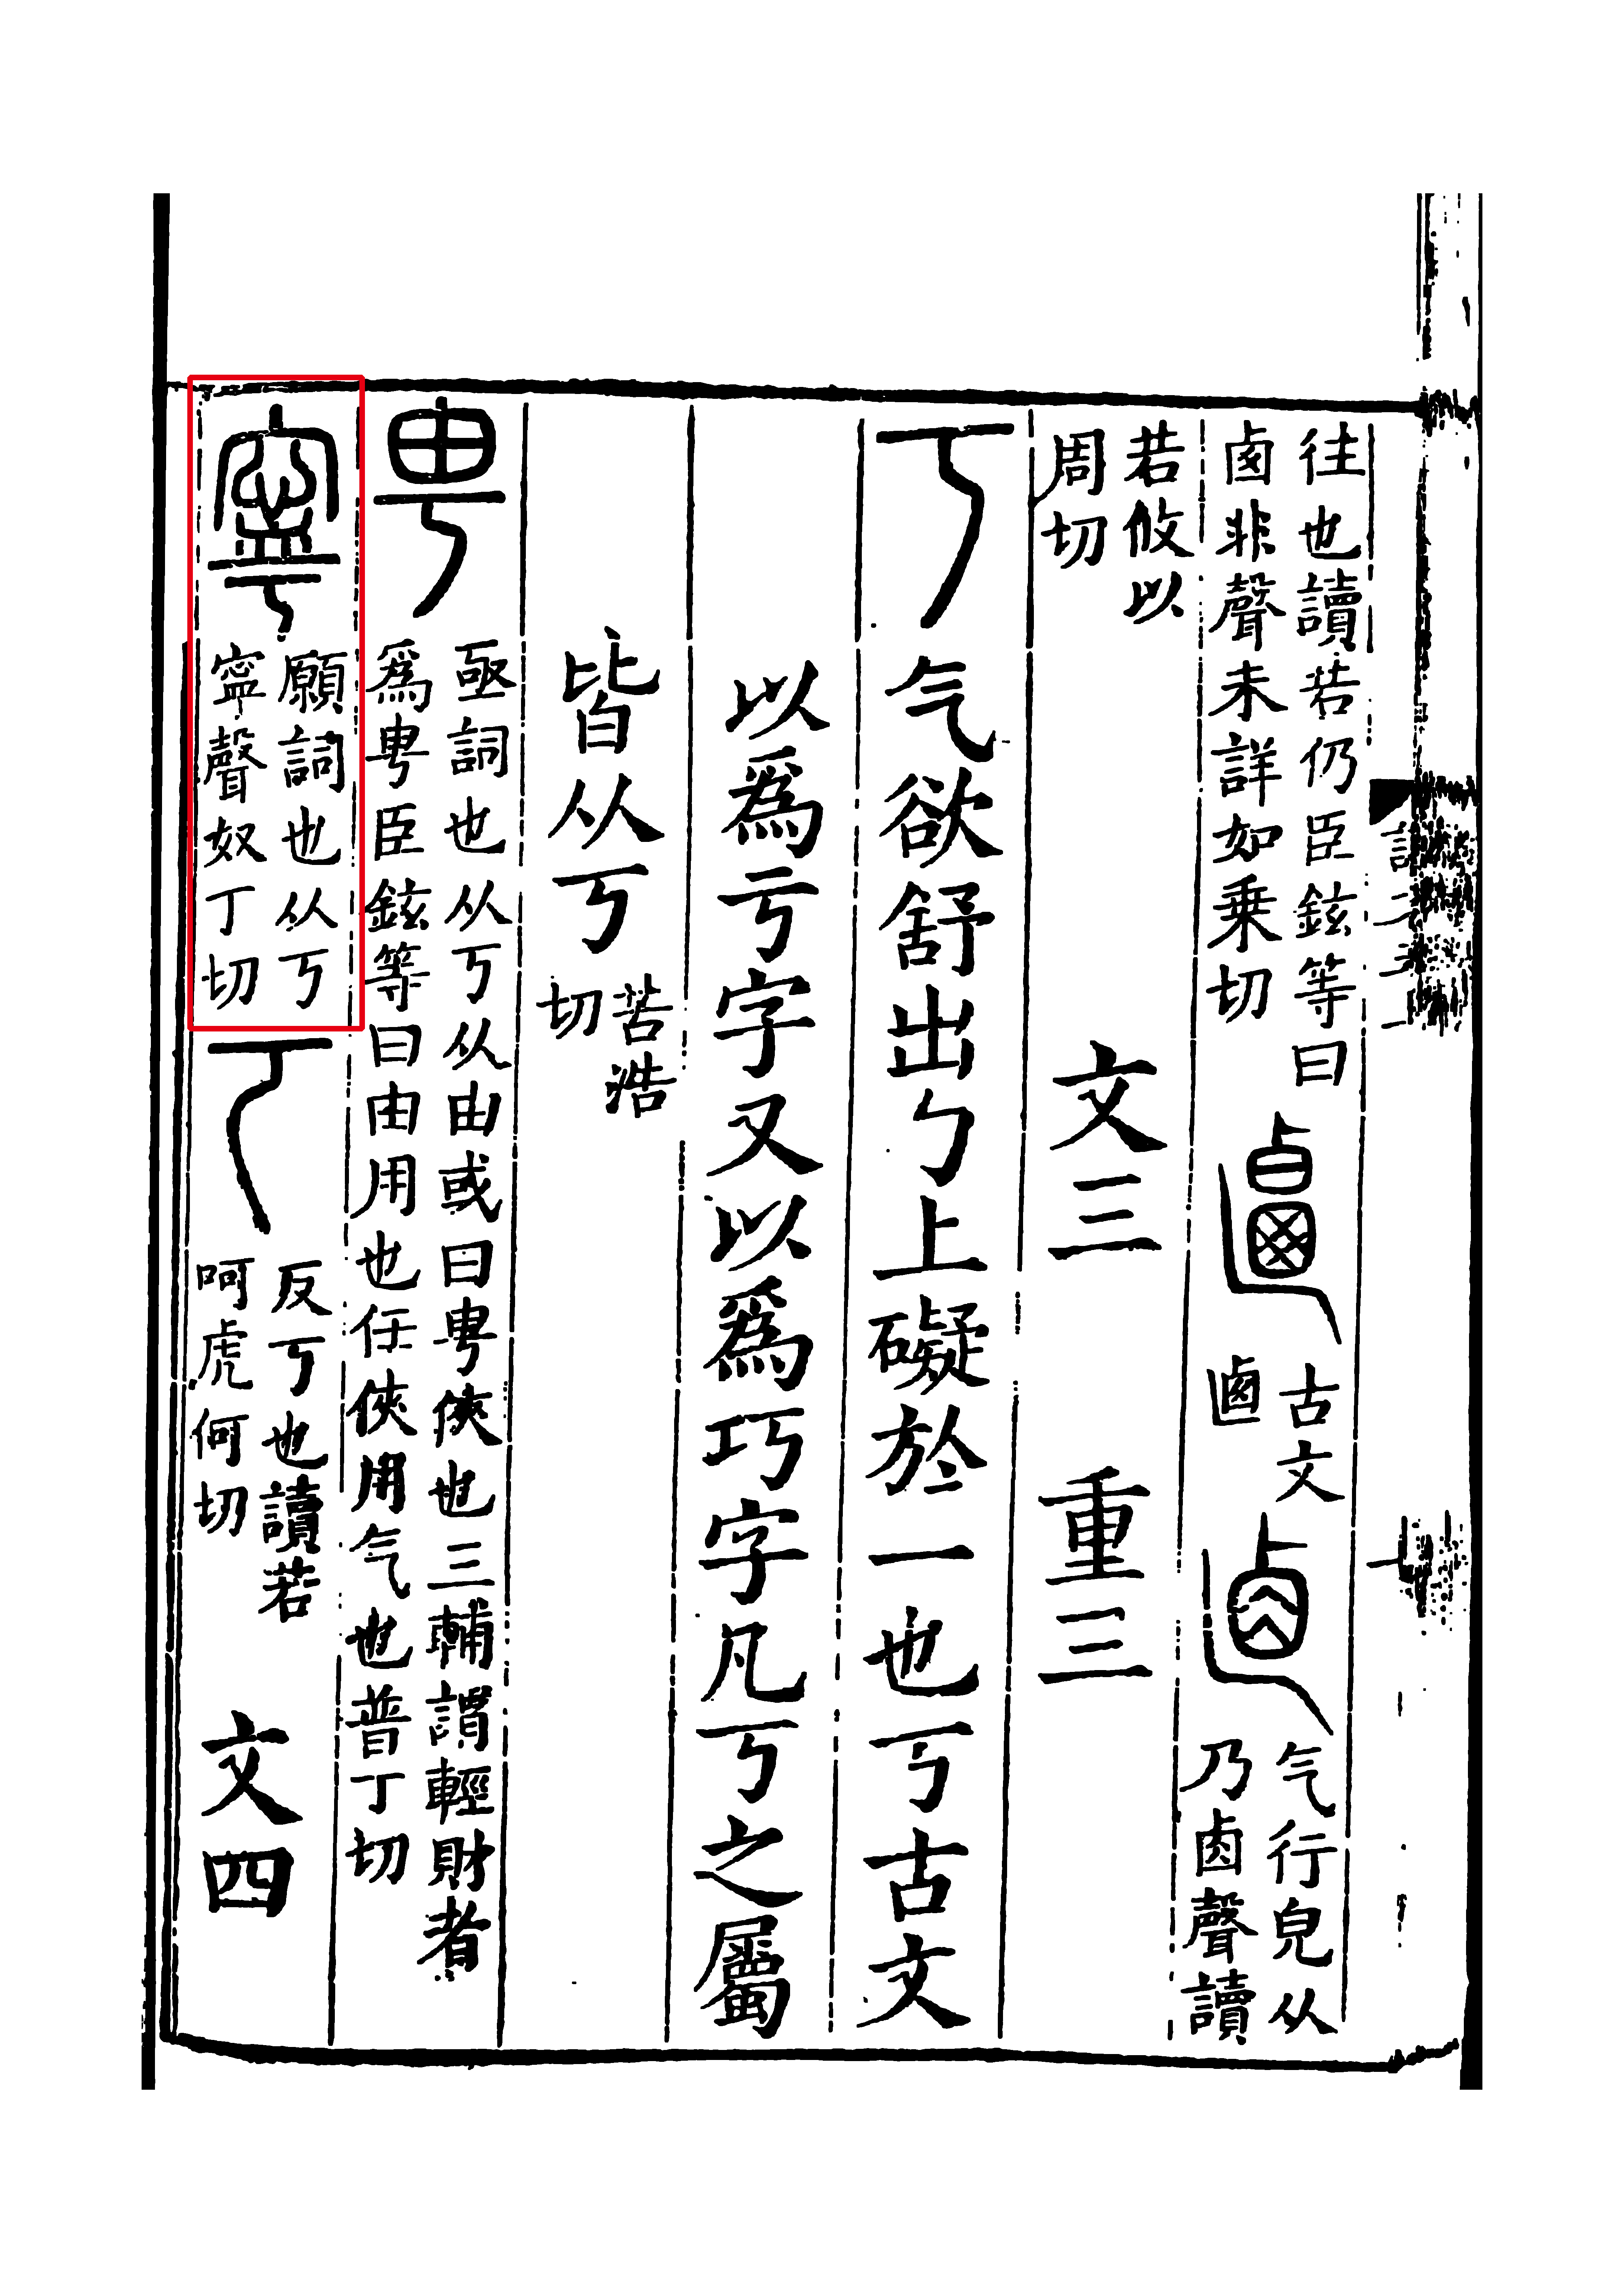 往也讀若仍臣鉉等曰
卥非聲未詳如乗切
𠧟
古文
𠧴
𠧪
气行皃从
乃卥聲讀
若攸以
周切
文三
重三
丂
气欲舒出勹上礙於一也丂古文
以爲亏字又以爲巧字凡丂之屬
皆从丂
苦浩
切
甹
亟詞也从丂从由或曰甹俠也三輔謂輕財者
爲甹臣鉉等曰由用也任俠用气也普丁切
寧
願詞也从丂
寍聲奴丁切
𠀀
反丂也讀若
呵虎何切
文四